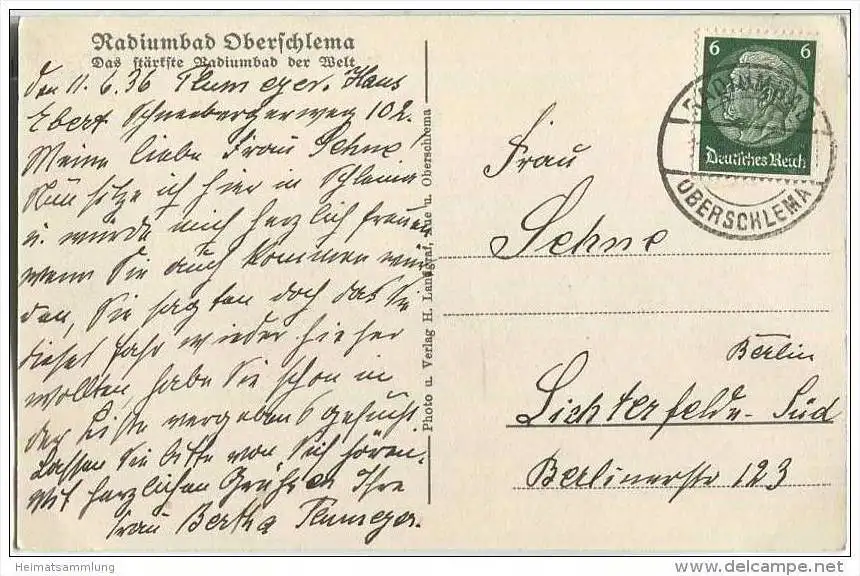 Radiumbad Oberschlema
Das stärkste Radiumbad der Welt
den 11. 6. 36 Haus
Ebert Schneebergerweg 102.
Meine liebe Frau Sehne!
Nun sitze ich hier in Schlema
u. würde mich herzlich freuen
wenn Sie auch kommen wür-
den, Sie sagten doch das Sie
dieses Jahr wieder hieher
wollten, habe Sie schon in
der Liste vergebens gesucht.
Lassen Sie bitte von Sich hören.
Mit herzlichen Grüßen Ihre
Frau Bertha
Photo u. Verlag H. Landgraf, Aue u. Oberschlema
6 6
Deutsches Reich
RADIUMBAD
OBERSCHLEMA
Frau
Sehne
Berlin
Lichterfelde-Süd
Berlinerstr 123
Heimatsammlung
www.delcampe.net